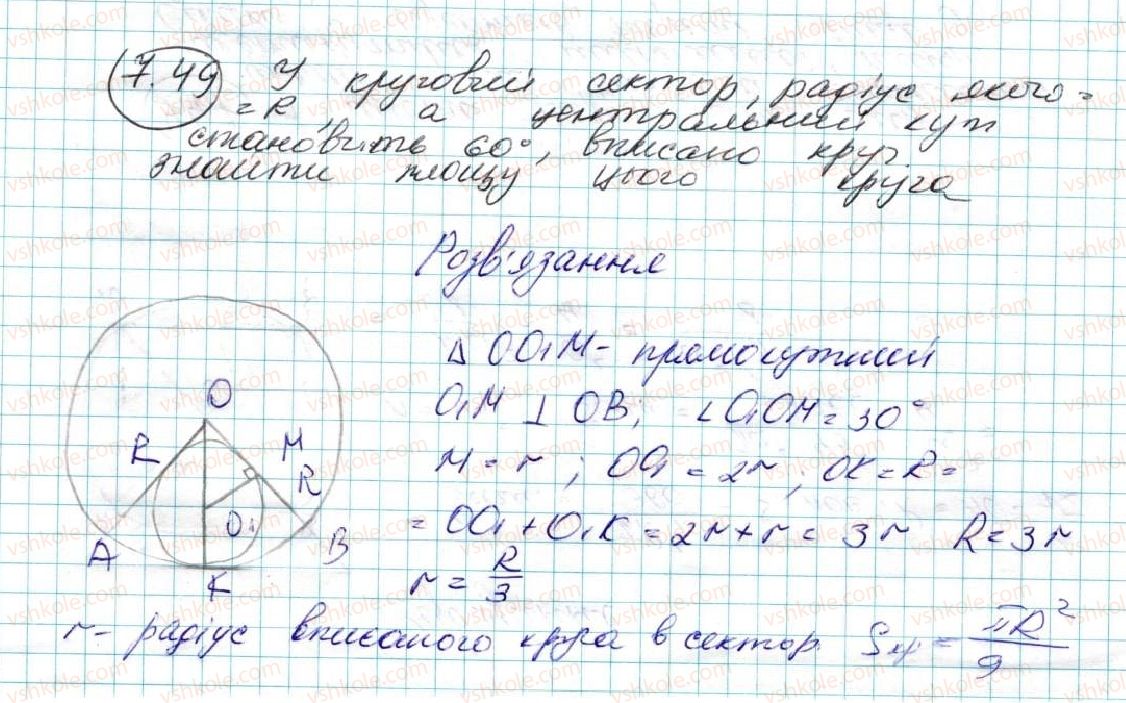 7.49 У круговий сектор, радіус якого =
= R, а центральний кут
становить 60°, вписано круг.
знайти площу цього круга
Розв'язання
Δ OO₁M - прямокутний
O₁M ⊥ OB; ∠O₁OM = 30°
M = r; OO₁ = 2r; OK = R =
= OO₁ + O₁K = 2r + r = 3r R = 3r
r = R/3
r - радіус вписаного круга в сектор. Sкр = πR²/9
O
R
M
R
O₁
A
B
K
vshkole.com